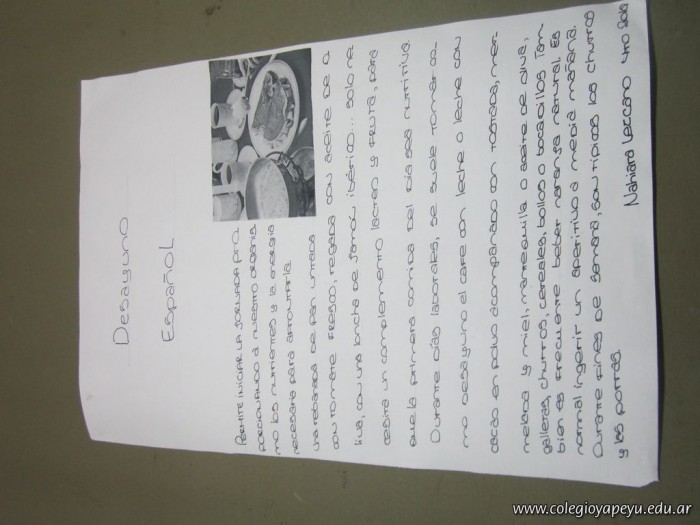 Desayuno
Español
Permite iniciar la jornada pro
porcionando a nuestro organis
mo los nutrientes y la energia
necesaria para afrontarla.
una rebanada de pan untada
con tomate fresco, regada con aceite de o
liva, con una loncha de jamón ibérico... solo ne
cesita un complemento lácteo y fruta, para
que la primera comida del día sea nutritiva.
Durante días laborales, se suele tomar co
mo desayuno el café con leche o leche con
cacao en polvo acompañado con tostada, mer
melada y miel, mantequilla o aceite de oliva,
galletas, churros, cereales, bollos o bocadillos. Tam
bien es frecuente beber naranja natural. Es
normal ingerir un aperitivo a media mañana.
Durante fines de semana, son típicos los churros
y las porras.
Nahiara Lezcano 4to
www.colegioyapeyu.edu.ar